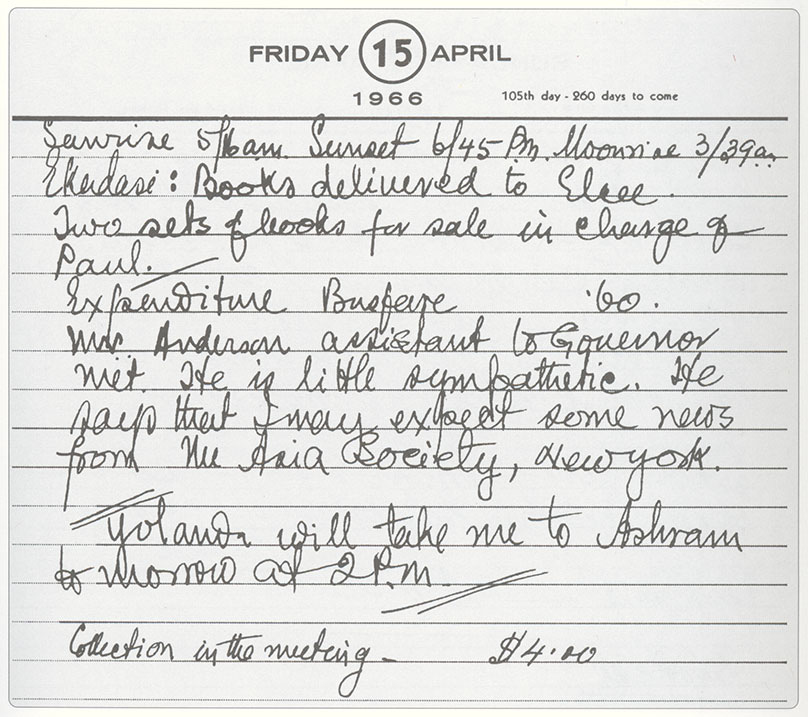 FRIDAY 15 APRIL
1966
105th day - 260 days to come
Sunrise 5/16 am. Sunset 6/45 P.m. Moonrise 3/39 a.m
Ekadasi: Books delivered to
Two sets of books for sale in charge of
Paul.
Expenditure Busfare '60.
Mr Anderson assistant to Governor
met. He is little sympathetic. He
says that I may expect some news
from the Asia Society, Newyork.
Yolanda will take me to Ashram
to morrow at 2 P.m.
Collection in the meeting - $4.00